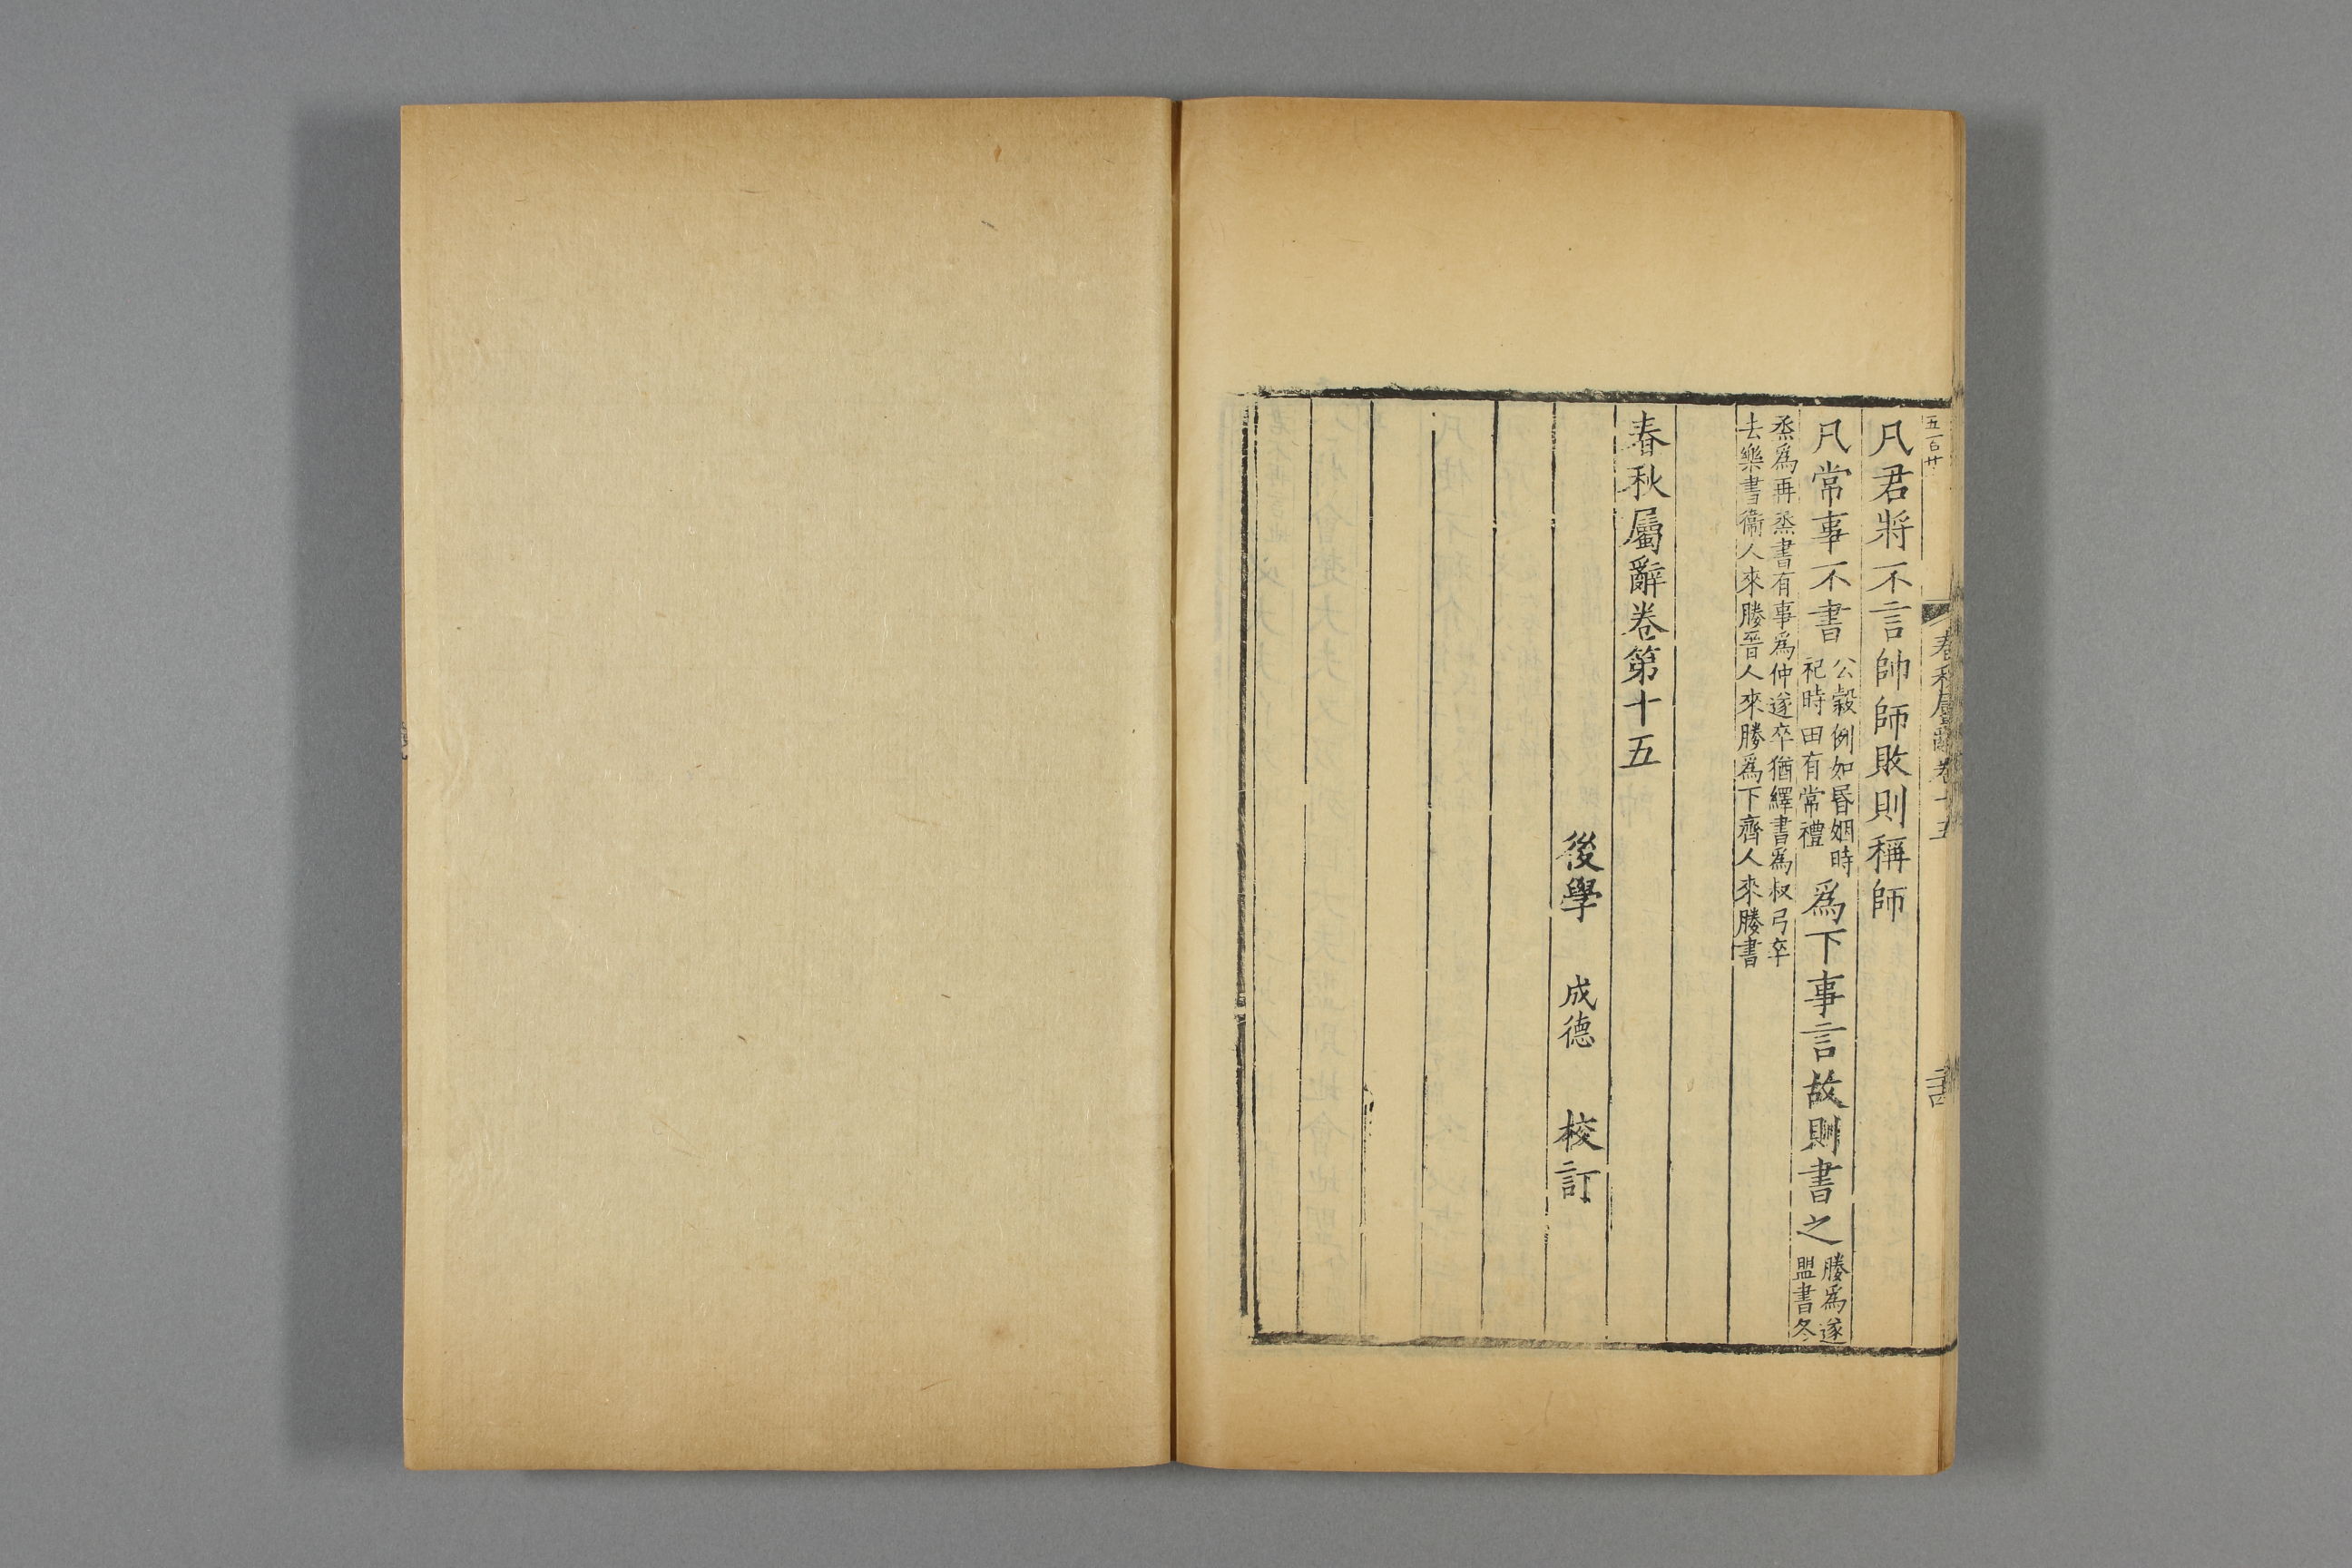 五百廿
春秋屬辭卷十五
凡君將不言帥師敗則稱師
凡常事不書公穀例如昏姻時祀時田有常禮為下事言故則書之媵為遂盟書冬
烝為再烝書有事為仲遂卒猶繹書為叔弓卒
去樂書衞人來媵晉人來媵為下齊人來媵書
春秋屬辭卷第十五
後學 成德 校訂